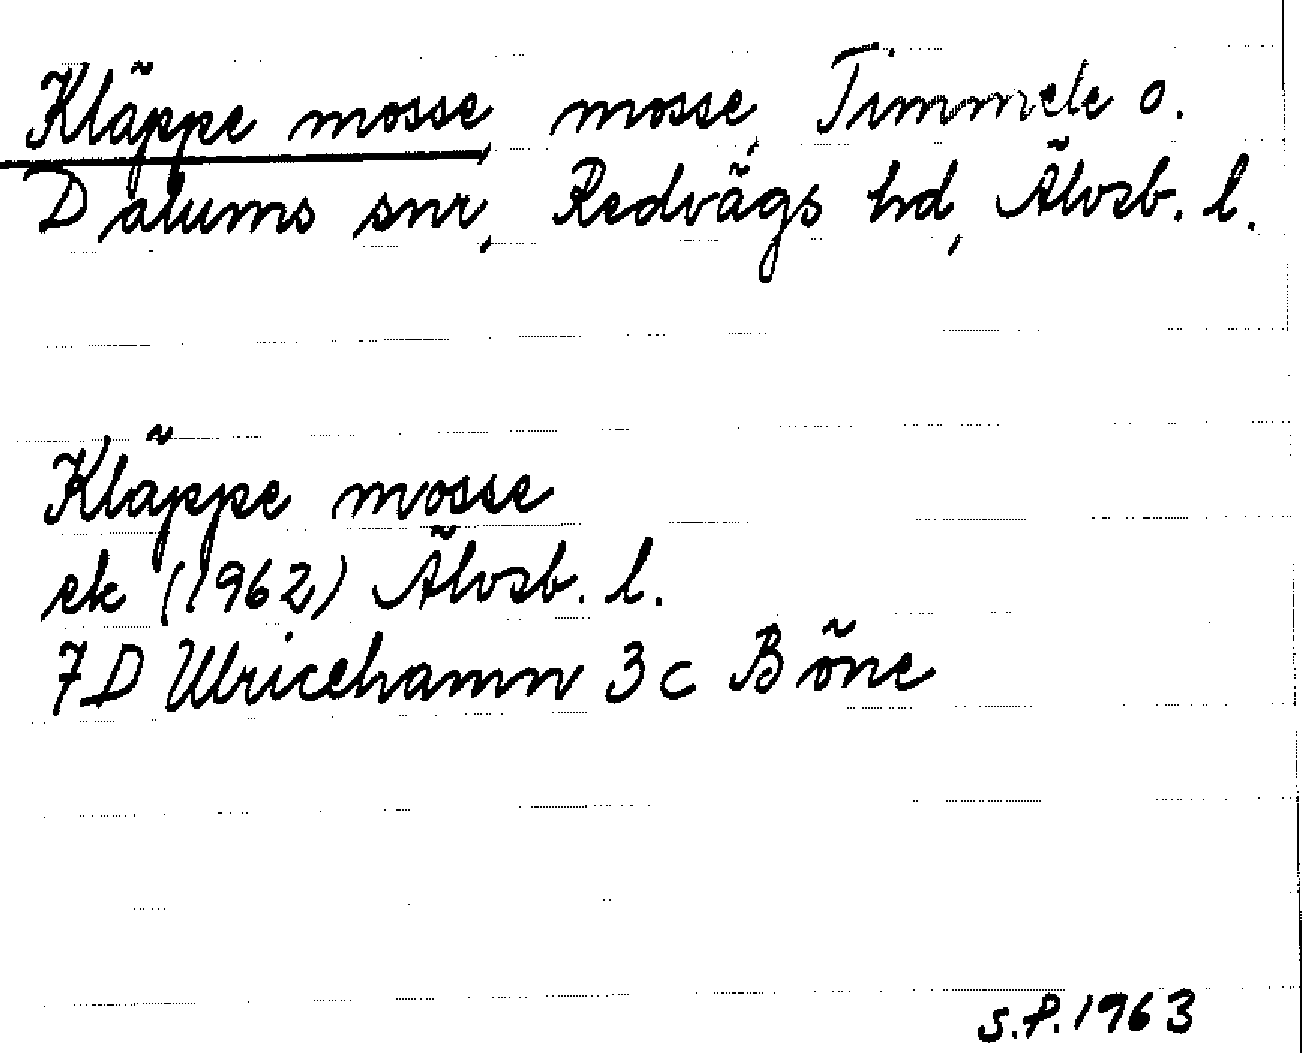 Kläppe mosse, mosse, Timmele o.
Dalums snr, Redvägs hd, Älvsb. l.
Kläppe mosse
ek (1962) Älvsb. l.
7D Ulricehamn 3c Böne
S.P. 1963